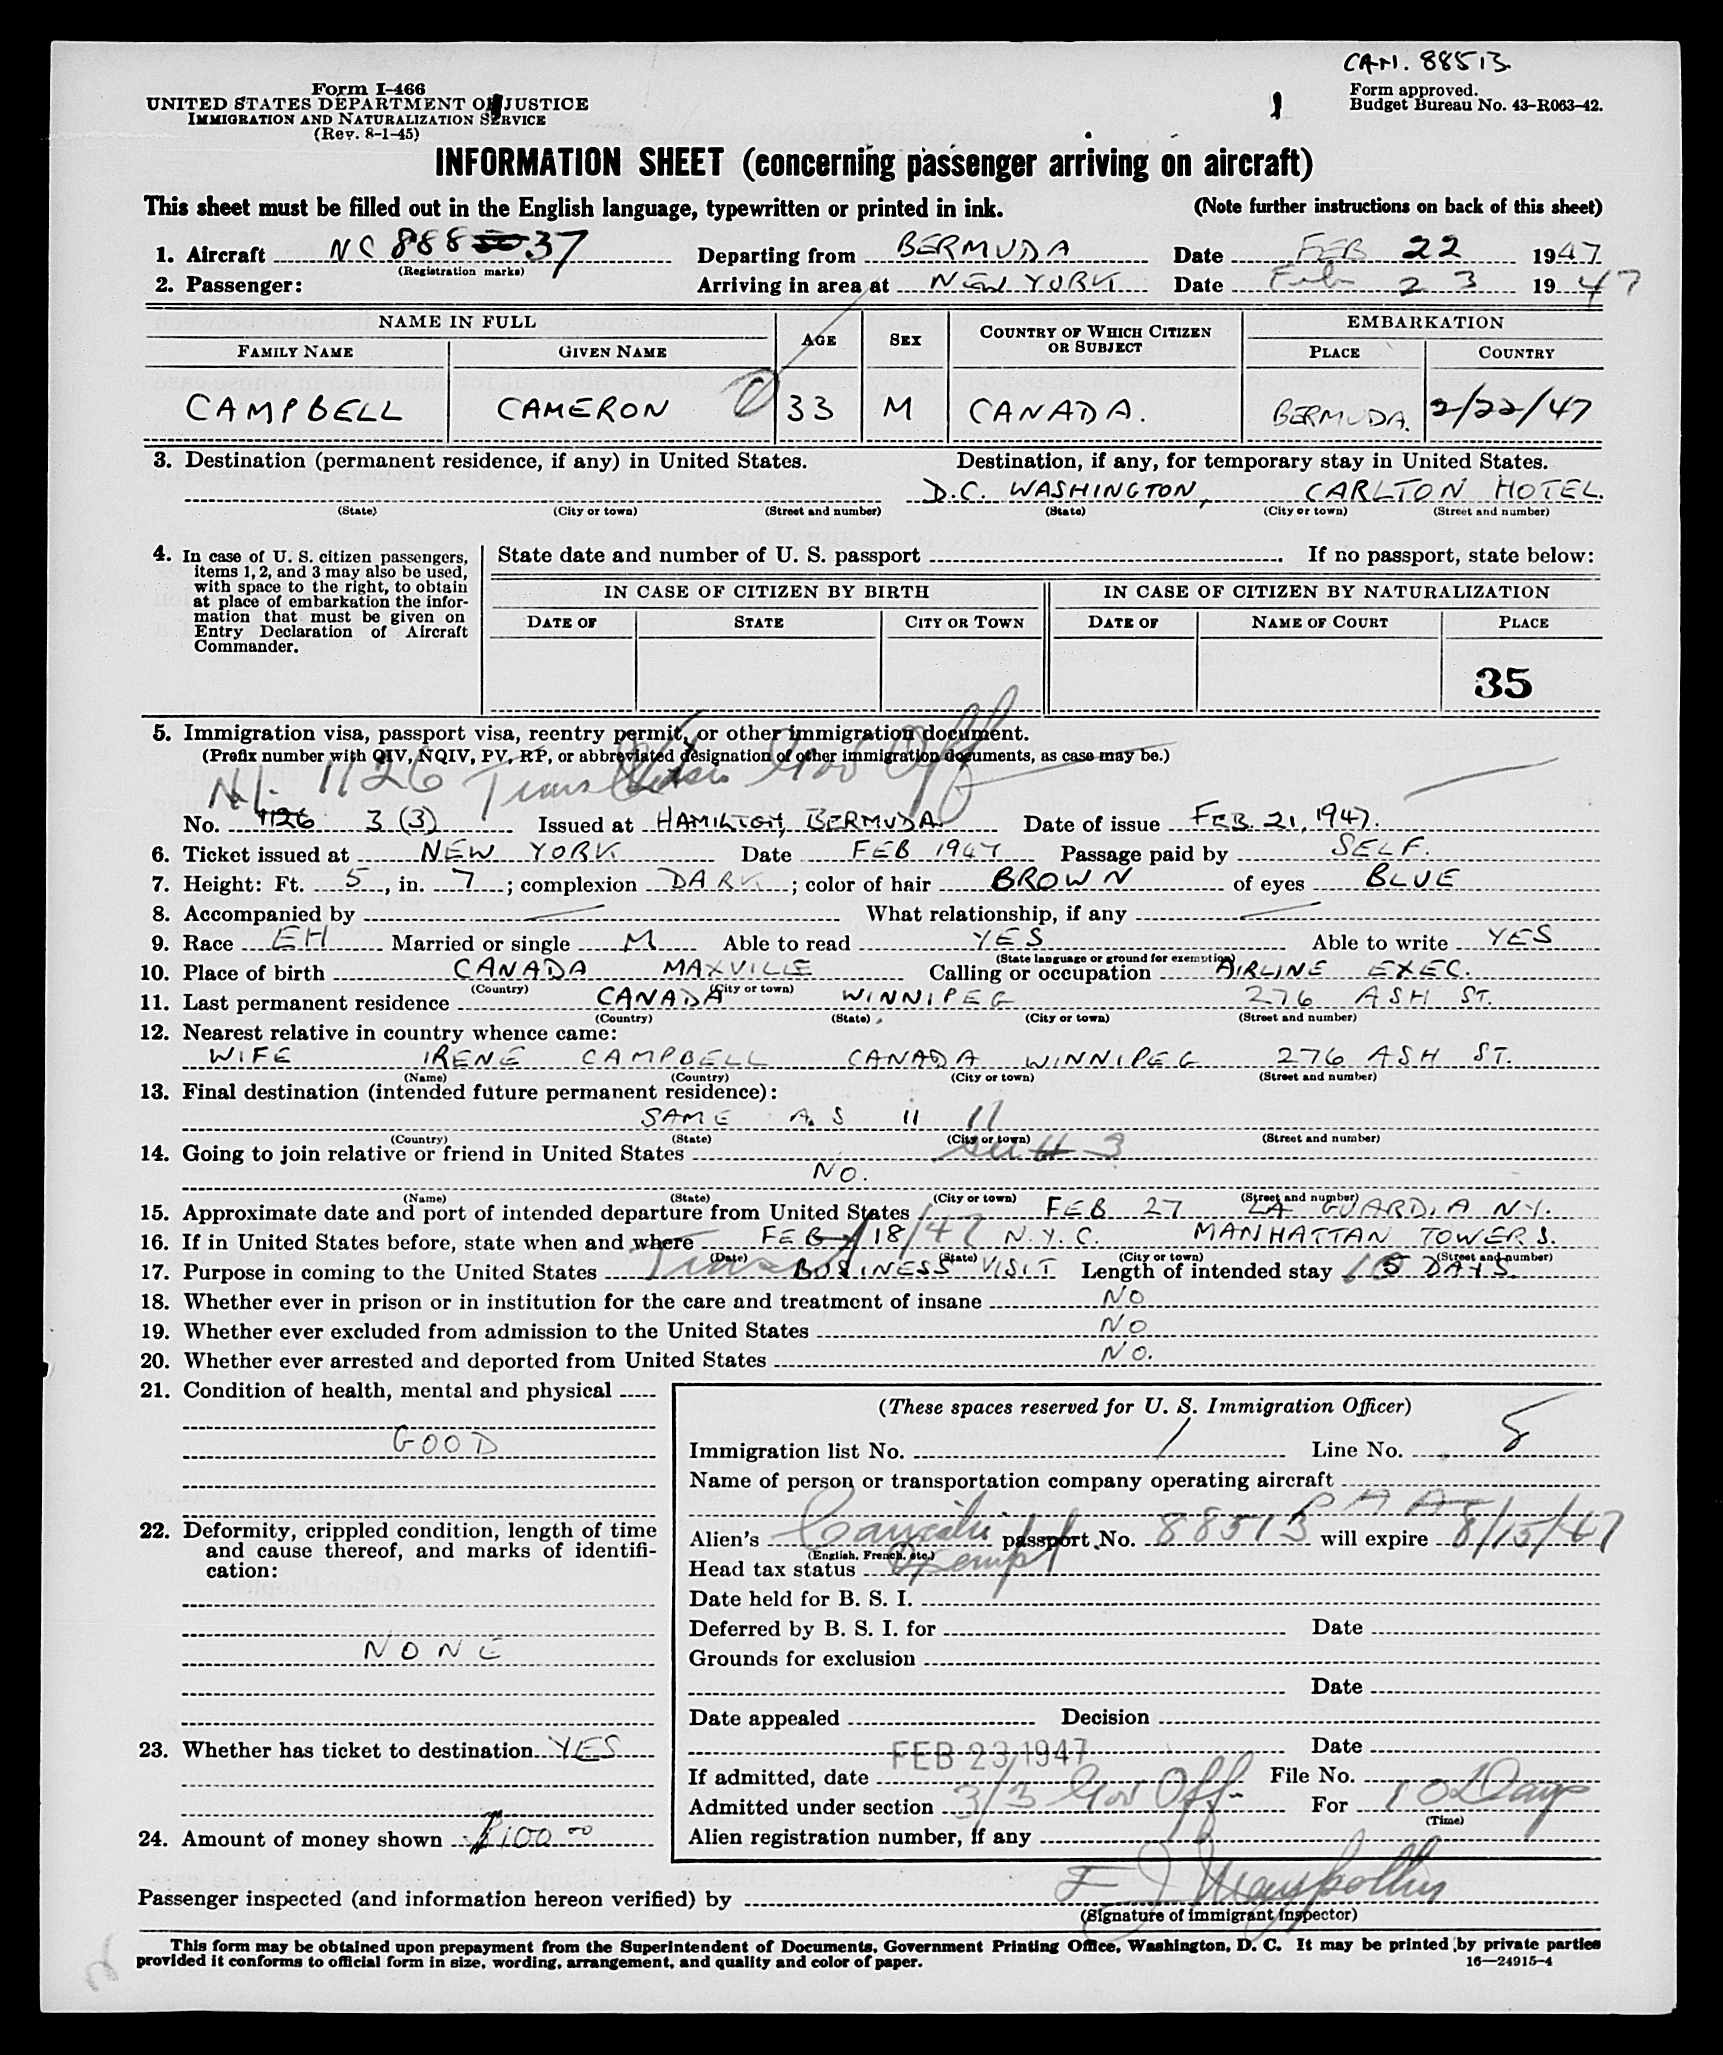 CAN. 88513
Form I-466
UNITED STATES DEPARTMENT OF JUSTICE
IMMIGRATION AND NATURALIZATION SERVICE
(Rev. 8-1-45)
Form approved.
Budget Bureau No. 43-R063-42.
INFORMATION SHEET (concerning passenger arriving on aircraft)
This sheet must be filled out in the English language, typewritten or printed in ink. (Note further instructions on back of this sheet)
1. Aircraft NC 88837 Departing from BERMUDA Date FEB 22 1947
(Registration marks)
2. Passenger: Arriving in area at NEW YORK Date Feb 23 1947
NAME IN FULL AGE SEX COUNTRY OF WHICH CITIZEN OR SUBJECT EMBARKATION
FAMILY NAME GIVEN NAME PLACE COUNTRY
CAMPBELL CAMERON 33 M CANADA. BERMUDA. 2/22/47
3. Destination (permanent residence, if any) in United States. Destination, if any, for temporary stay in United States.
D.C. WASHINGTON, CARLTON HOTEL.
(State) (City or town) (Street and number) (State) (City or town) (Street and number)
4. In case of U. S. citizen passengers, items 1, 2, and 3 may also be used, with space to the right, to obtain at place of embarkation the information that must be given on Entry Declaration of Aircraft Commander.
State date and number of U. S. passport If no passport, state below:
IN CASE OF CITIZEN BY BIRTH IN CASE OF CITIZEN BY NATURALIZATION
DATE OF STATE CITY OR TOWN DATE OF NAME OF COURT PLACE
35
5. Immigration visa, passport visa, reentry permit, or other immigration document.
(Prefix number with QIV, NQIV, PV, RP, or abbreviated designation of other immigration documents, as case may be.)
1126 Trans Gov Off
No. 1126 3 (3) Issued at HAMILTON, BERMUDA. Date of issue FEB. 21, 1947.
6. Ticket issued at NEW YORK Date FEB 1947 Passage paid by SELF.
7. Height: Ft. 5, in. 7; complexion DARK; color of hair BROWN of eyes BLUE
8. Accompanied by — What relationship, if any —
9. Race EH Married or single M Able to read YES Able to write YES
(State language or ground for exemption)
10. Place of birth CANADA MAXVILLE Calling or occupation AIRLINE EXEC.
(Country) (City or town)
11. Last permanent residence CANADA WINNIPEG 276 ASH ST.
(Country) (State) (City or town) (Street and number)
12. Nearest relative in country whence came:
WIFE IRENE CAMPBELL CANADA WINNIPEG 276 ASH ST.
(Name) (Country) (City or town) (Street and number)
13. Final destination (intended future permanent residence):
SAME AS 11 11
(Country) (State) (City or town) (Street and number)
14. Going to join relative or friend in United States 3
NO.
(Name) (State) (City or town) (Street and number)
15. Approximate date and port of intended departure from United States FEB 27 LA GUARDIA N.Y.
16. If in United States before, state when and where FEB 18/47 N.Y.C. MANHATTAN TOWERS.
(Date) (State) (City or town) (Street and number)
17. Purpose in coming to the United States Trans BUSINESS VISIT Length of intended stay 5 DAYS.
18. Whether ever in prison or in institution for the care and treatment of insane NO
19. Whether ever excluded from admission to the United States NO
20. Whether ever arrested and deported from United States NO.
21. Condition of health, mental and physical
GOOD
22. Deformity, crippled condition, length of time and cause thereof, and marks of identification:
NONE
23. Whether has ticket to destination YES
24. Amount of money shown $100.00
(These spaces reserved for U. S. Immigration Officer)
Immigration list No. 1 Line No. 8
Name of person or transportation company operating aircraft
P A A
Alien's Canadian passport No. 88513 will expire 8/15/47
(English, French, etc.)
Head tax status Exempt
Date held for B. S. I.
Deferred by B. S. I. for Date
Grounds for exclusion
Date
Date appealed Decision
Date
If admitted, date FEB 23 1947 File No.
Admitted under section 3/3 Gov Off. For 10 Days
(Time)
Alien registration number, if any
Passenger inspected (and information hereon verified) by
(Signature of immigrant inspector)
This form may be obtained upon prepayment from the Superintendent of Documents, Government Printing Office, Washington, D. C. It may be printed by private parties
provided it conforms to official form in size, wording, arrangement, and quality and color of paper. 16—24915-4